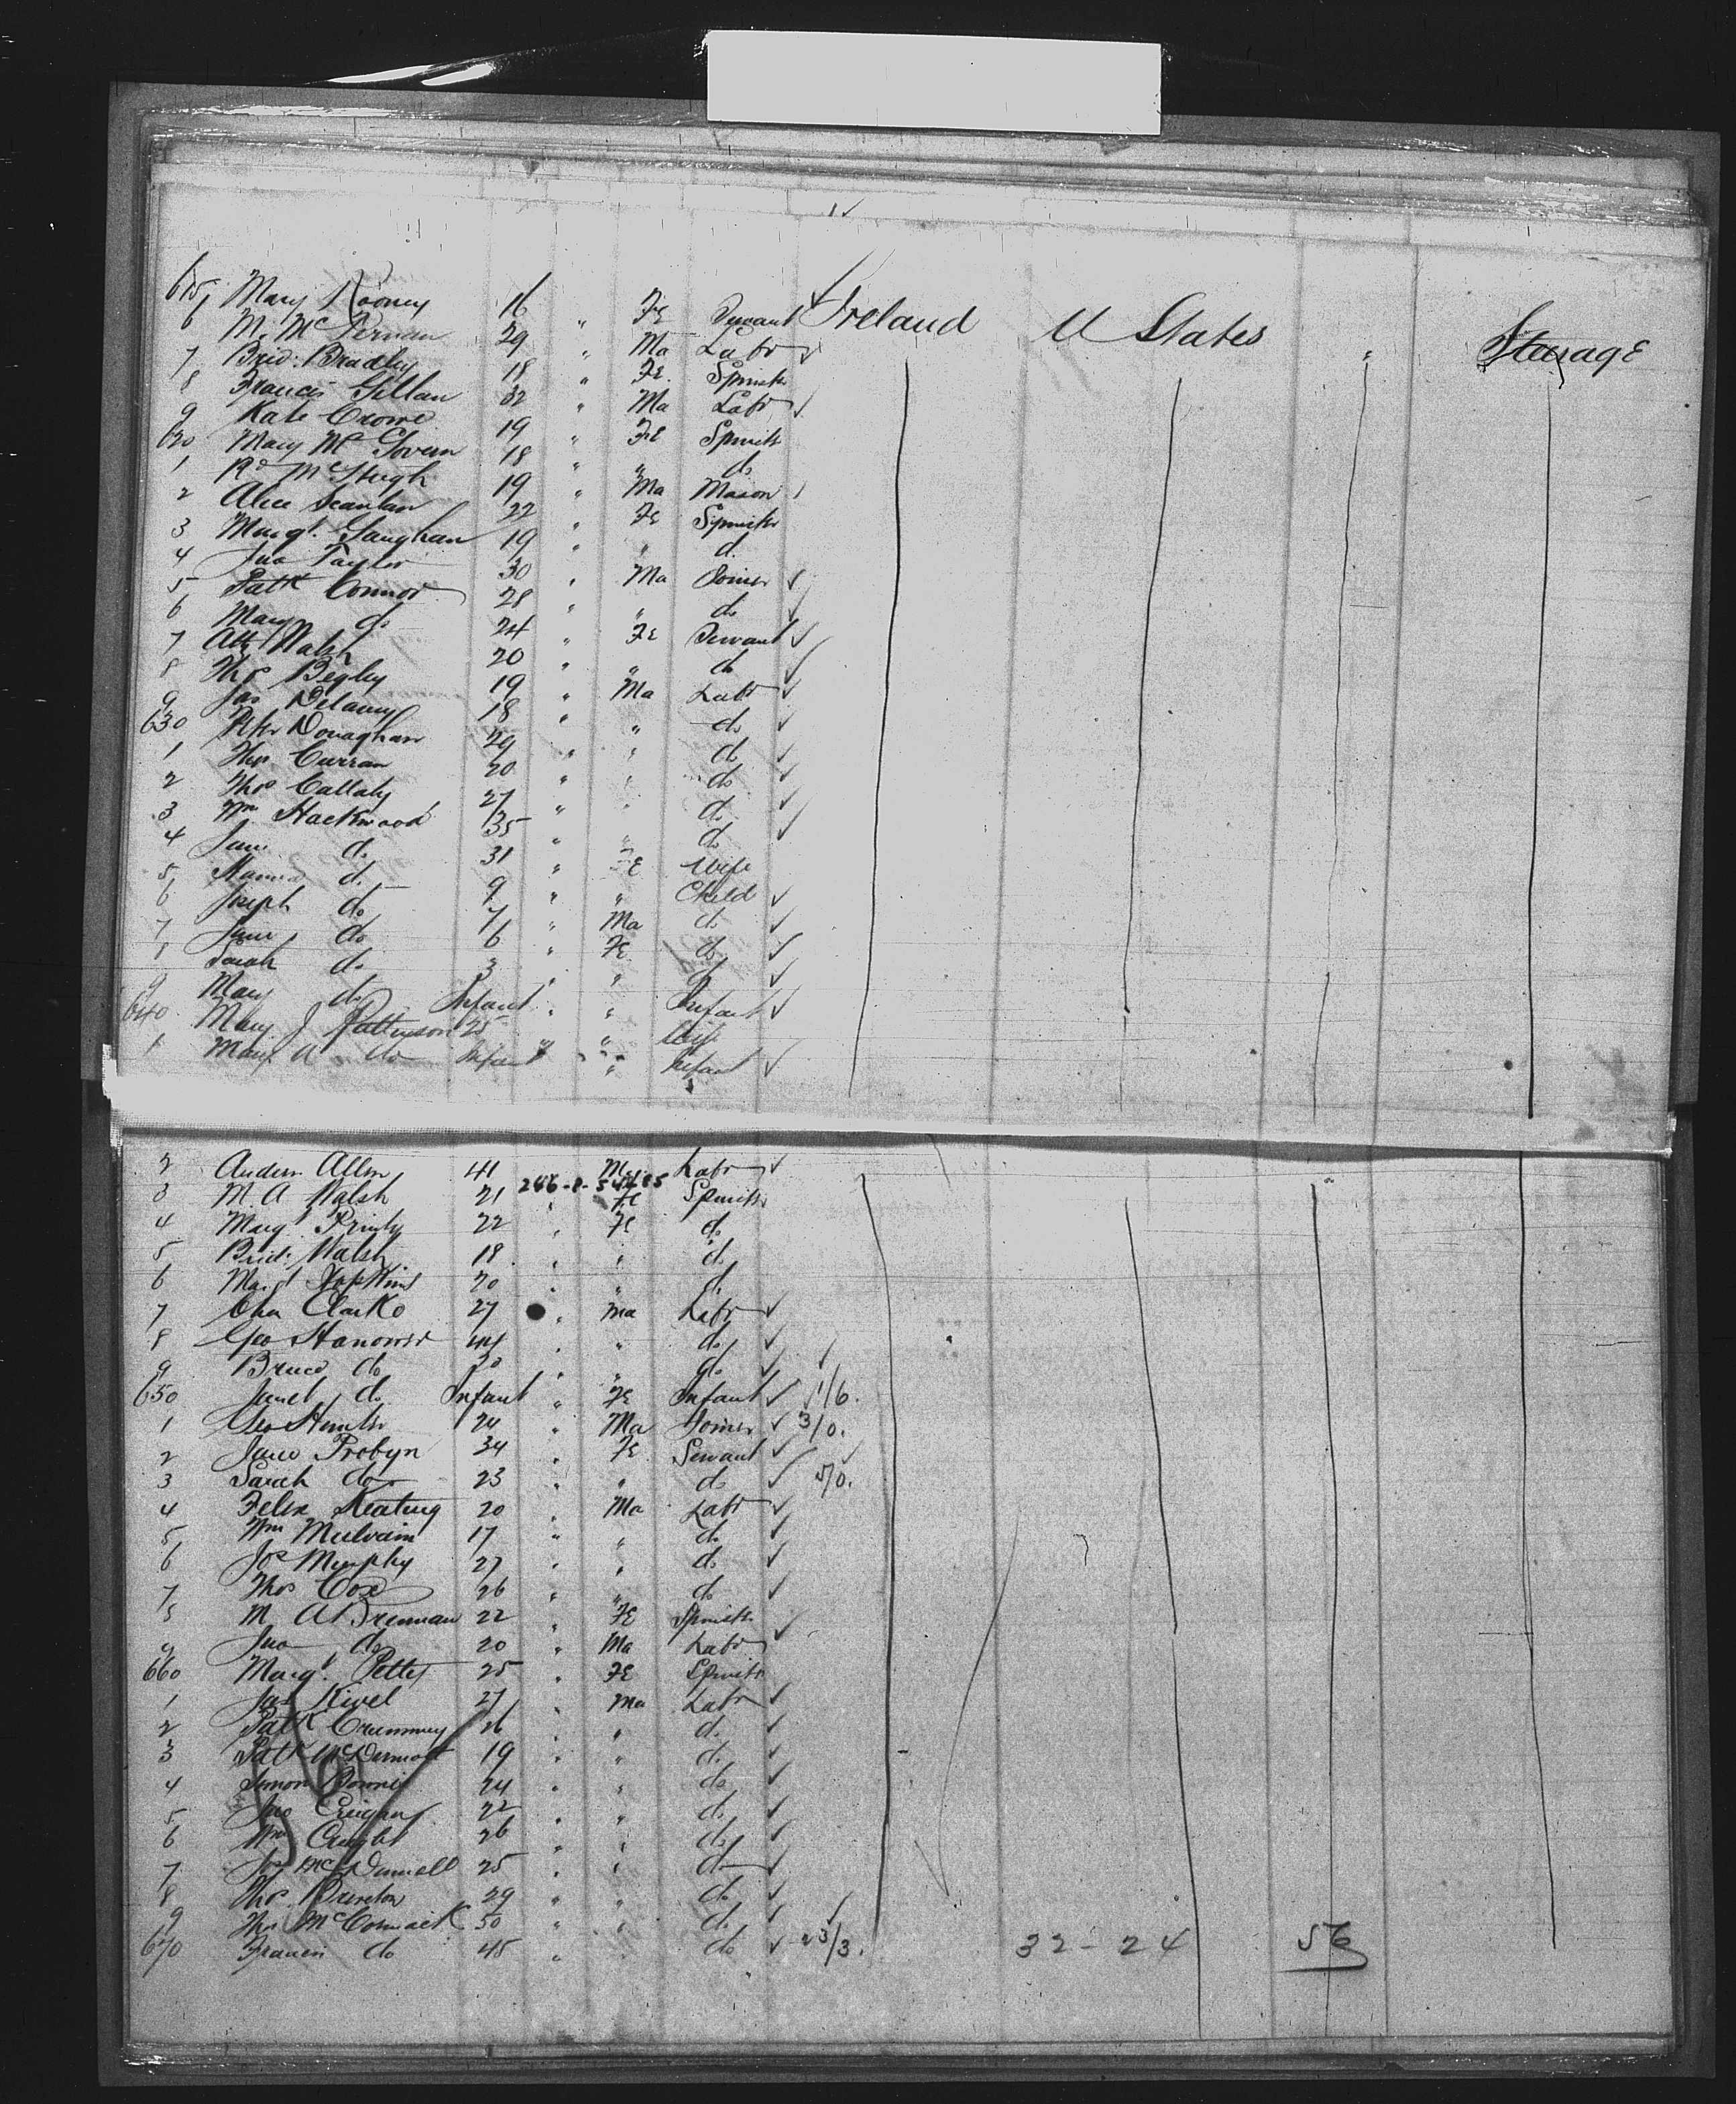 615 Mary Rooney 16 " Fe Servant Ireland U States " Steerage
6 M. McKernan 29 " Ma Labr
7 Brid. Bradley 18 " Fe Spinstr
8 Francis Gillan 32 " Ma Labr
9 Kate Crowe 19 " Fe Spinstr
620 Mary McGovern 18 " " do
1 Rd McHugh 19 " Ma Mason
2 Alice Scanlan 22 " Fe Spinstr
3 Margt. Gaughan 19 " " do
4 Jno Taylor 30 " Ma Joiner
5 Patk Connor 28 " " do
6 Mary do 24 " Fe Servant
7 Walsh 20 " " do
8 Thos Begley 19 " Ma Labr
9 Jas Delaney 18 " " do
630 Peter Donaghan 29 " " do
1 Thos Curran 20 " " do
2 Thos Callahy 27 " " do
3 Wm Hackwood 35 " " do
4 Jane do 31 " Fe Wife
5 do 9 " " Child
6 Joseph do 7 " Ma do
7 Jane do 6 " Fe do
8 Sarah do 3 " " do
9 Mary do Infant " " Infant
640 Mary J Patterson 25 " " Wife
1 Mary A do Infant " " Infant
2 Andrew Allen 41 Ma Labr
246-8-54485
3 M. A Walsh 21 " Fe Spinstr
4 Margt 22 " Fe do
5 Brid. Walsh 18 " " do
6 Margt Hopkins 20 " " do
7 Cha Clarke 27 " Ma Labr
8 Geo 44 " " do
9 Bruce do 30 " " do
650 Janet do Infant " Fe Infant 1/6.
1 Geo Hunter 24 " Ma Joiner 3/0.
2 Jane Probyn 34 " Fe Servant
3 Sarah do 23 " " do 5/0.
4 Felix Keating 20 " Ma Labr
5 Wm Mulvain 17 " " do
6 Jos Murphy 27 " " do
7 Thos Cox 26 " " do
8 M A Brennan 22 " Fe Spinstr
9 Jno do 20 " Ma Labr
660 Margt. 25 " Fe Spinstr
1 Jas Kivel 27 " Ma Labr
2 Patk Crummey 26 " " do
3 Patk McDermott 19 " " do
4 Simon 24 " " do
5 Jno 22 " " do
6 Wm 26 " " do
7 25 " " do
8 Thos 29 " " do
9 Thos McCormack 50 " " do
670 Francis do 45 " " do 23/3. 32 - 24 56